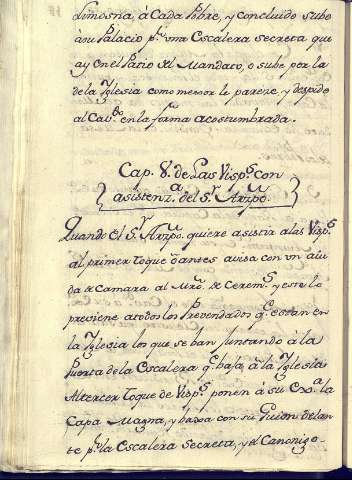 Limosna, à Cada Pobre, y concluido sube
à su Palacio pr. una Escalera secreta que
ay en el Patio del Mandato, o sube por la
de la Yglesia como mejor le parece, y despide
al Cavdo. en la forma acostumbrada.
Cap. 8. de Las Vispš con
asistenza. del Sr. Arzpo.
Quando el Sr. Arzpo. quiere asistir a las Visps
al primer toque o antes avisa con un aiu
da de camara al Mro. de Cerems. y este lo
previene a todos los Prevendados qe. estan en
la Yglesia los que se ban Juntando â la
Puerta de la Escalera qe. baja â la Yglesia
Al tercer Toque de Visps. ponen á su Exa. la
Capa Magna, y baxa con su Guion delan
te pr. la Escalera Secreta, y el Canonigo-